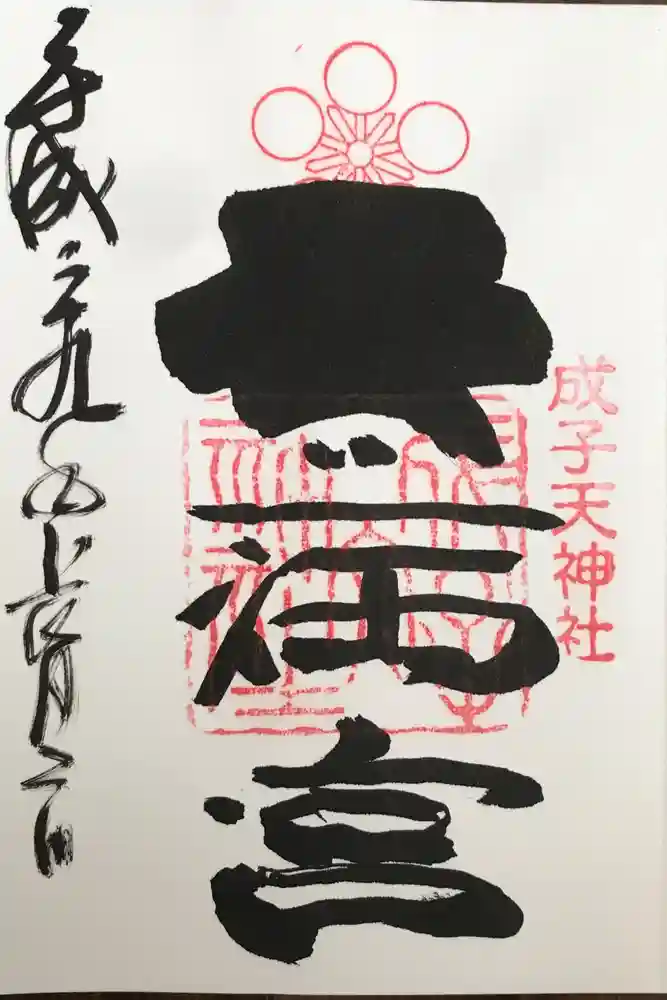 成子天神社
天満宮
平成二十九年 月二日